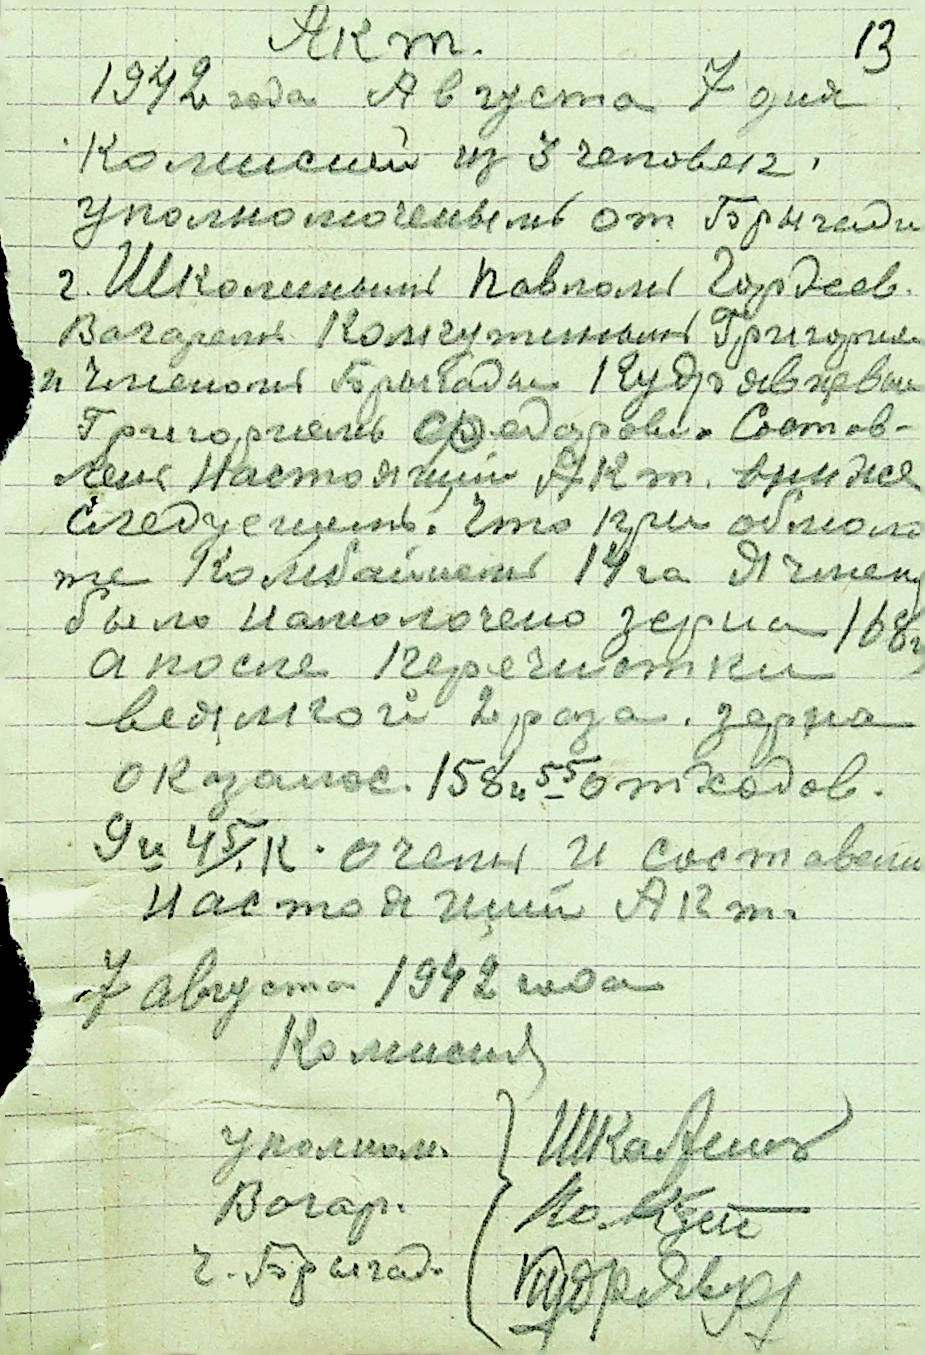 Акт. 13
1942 года Августа 7 дня
Комисией из 3 человек,
уполномоченым от Брыгади
г. Школиным Павлом Гордеев.
Вагарем Григорием
и Членом Брыгады Кудрявцевым
Григорием Федорови. Состав-
лен Настоящий Акт. в ниже
следуещем. Что при обмоло
те Комбайнем 14 га Ячмен
было намолочено зерна 168ц
а после перечистки
веялкой 2 раза. зерна
оказалос. 158ц 55 отходов.
9ц 45 к. о чем и составлен
настоящий Акт.
7 августа 1942 года
Комисия
уполном. Школин
Вагар.
Ч. Брыгад. Кудрявц